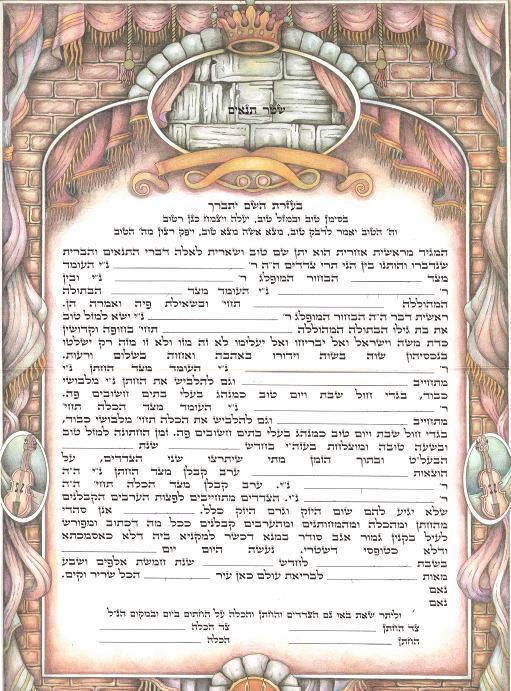 שטר תנאים
בעזרת השם יתברך
בסימן טוב ובמזל טוב, יעלה ויצמח כגן רטוב
וה׳ הטוב יאמר לדבק טוב, מצא אשה מצא טוב, ויפק רצון מה׳ הטוב
המגיד מראשית אחרית הוא יתן שם טוב ושארית לאלה דברי התנאים והברית
שנדברו והותנו בין הני תרי צדדים ה״ה ר׳ ____________ נ״י העומד
מצד ____________ הבחור המופלג ר׳ ____________ נ״י ובין
ר׳ ____________ נ״י העומד מצד ____________ הבתולה
המהוללה ____________ תחי׳ ובשאילת פיה ואמרה הן.
ראשית דבר ה״ה הבחור המופלג ר׳ ____________ נ״י ישא למזל טוב
את בת גילו הבתולה המהוללה ____________ תחי׳ בחופה וקדושין
כדת משה וישראל ואל יבריחו ואל יעלימו לא זה מזו ולא זו מזה רק ישלטו
בנכסיהון שוה בשוה וידורו באהבה ואחוה בשלום ורעות.
ר׳ ____________ נ״י העומד מצד החתן נ״י
מתחייב ____________ וגם להלביש את החתן נ״י מלבושי
כבוד, בגדי חול שבת ויום טוב כמנהג בעלי בתים חשובים פה.
ר׳ ____________ נ״י העומד מצד הכלה תחי׳
מתחייב ____________ וגם להלביש את הכלה תחי׳ מלבושי כבוד,
בגדי חול שבת ויום טוב כמנהג בעלי בתים חשובים פה. זמן החתונה למזל טוב
ובשעה טובה ומוצלחת בעזה״י בחדש ____________ שנת ____________
הבעל״ט ובתוך הזמן מתי שיתרצו שני הצדדים, על
הוצאות ____________ ערב קבלן מצד החתן נ״י ה״ה
ר׳ ____________ נ״י. ערב קבלן מצד הכלה תחי׳ ה״ה
ר׳ ____________ נ״י. הצדדים מתחייבים לפצות הערבים הקבלנים
שלא יגיע להם שום היזק וגרם היזק כלל. ____________ אנן סהדי
מהחתן ומהכלה ומהמחותנים ומהערבים קבלנים ככל מה דכתוב ומפורש
לעיל בקנין גמור אגב סודר במנא דכשר למקניא ביה דלא כאסמכתא
ודלא כטופסי דשטרי. נעשה היום יום ____________
בשבת ____________ לחדש ____________ שנת חמשת אלפים ושבע
מאות ____________ לבריאת עולם כאן עיר ____________ הכל שריר וקים.
נאם
נאם
ולית�ר שאת באו גם הצדדים והחתן והכלה על החתום ביום ובמקום הנ״ל
צד החתן ____________ צד הכלה ____________
החתן ____________ הכלה ____________